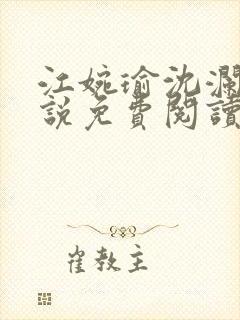 江婉瑜沈瀾
說免費閱讀
崔教主